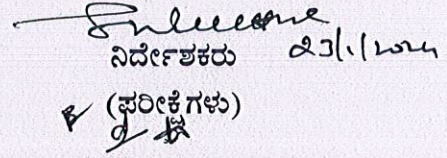 ನಿರ್ದೇಶಕರು 23/1/2024
(ಪರೀಕ್ಷೆಗಳು)